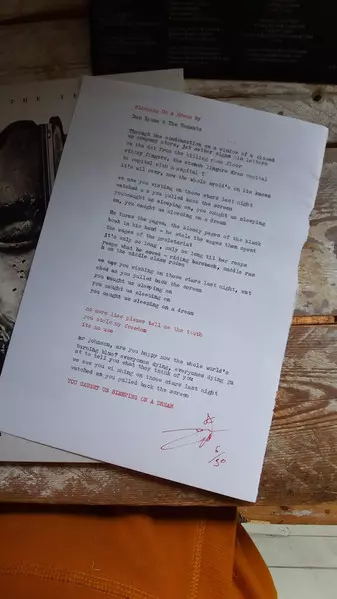 THE
Sleeping On a Dream by
Dan Byrne & The Tenants
Through the condensation on a window of a closed
up company store, jet writer signs in letters
on the dirt from the killing room floor
sticky fingers, the stench lingers from capital
to capital with a capital T
it's all over, now the whole world's on its knees
we saw you wishing on those stars last night
watched as you pulled back the screen
you caught us sleeping on, you caught us sleeping
on, you caught us sleeping on a dream
He turns the pages, the bloody pages of the black
book in his hand - he stole the wages them spent
the wages of the proletariat
it's only so long , only so long til her reaps
reaps what he sowed - riding bareback, saddle sore
on the middle class posse
we saw you wishing on those stars last night, wat
ched as you pulled back the screen
you caught us sleeping on
you caught us sleeping on
you caught us sleeping on a dream
no more lies please tell us the truth
you stole my freedom
its no use
mr johnson, are you happy now the whole world's
burning blue? everyones dying, everyones dying
to tell you what they think of you
we saw you wi shing on those stars last night
watched as you pulled back the screen
YOU CAUGHT US SLEEPING ON A DREAM
6/50